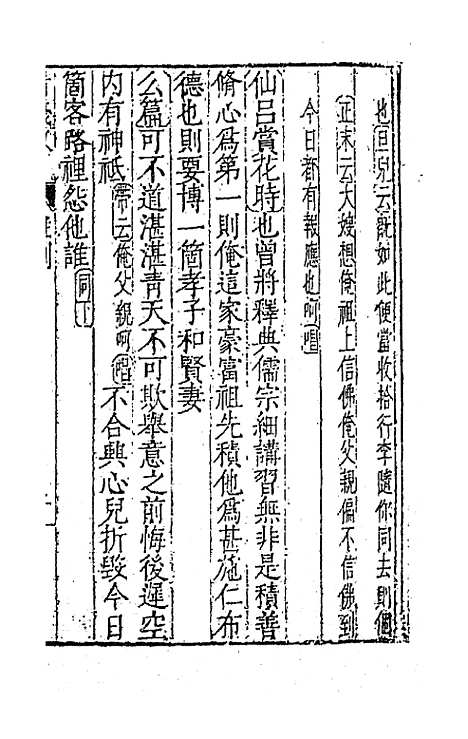 也旦兒云旣如此便當收拾行李隨你同去則個
正末云大嫂想俺祖上信佛俺父親偏不信佛到
今日都有報應也呵唱
仙呂賞花時也曾將釋典儒宗細講習無非是積善
脩心爲第一則俺這家豪富祖先積他爲甚施仁布
德也則要博一箇孝子和賢妻
么篇可不道湛湛青天不可欺舉意之前悔後遲空
内有神祇帶云俺父親呵唱不合興心兒折毀今日
箇客路裡怨他誰同下